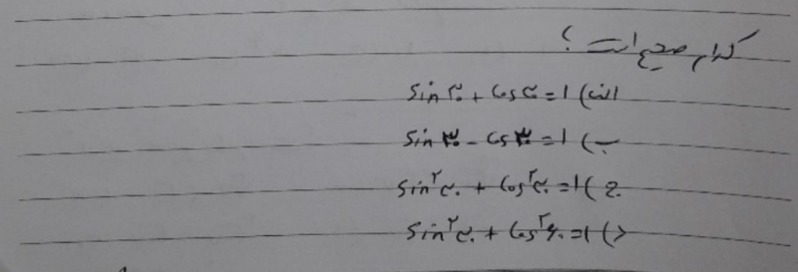 کدام صحیح است ؟
الف) sin ۳۰ + cos ۳۰ = 1
ب) sin ۳۰ - cos ۳۰ = 1
ج) sin²۳۰ + cos²۳۰ = 1
د) sin²۳۰ + cos²۶۰ = 1